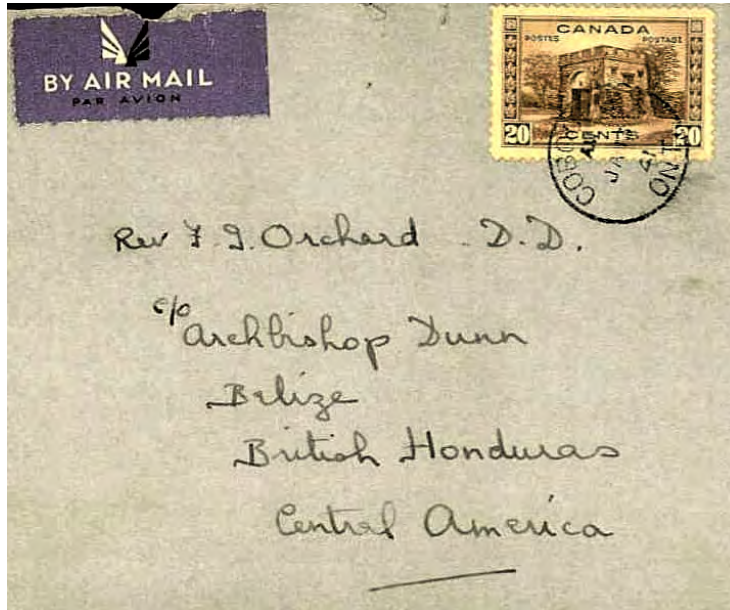 BY AIR MAIL
PAR AVION
CANADA
POSTES POSTAGE
20 CENTS 20
JA
41
ONT
Rev F. G. Orchard D.D.
c/o
Archbishop Dunn
Belize
British Honduras
Central America